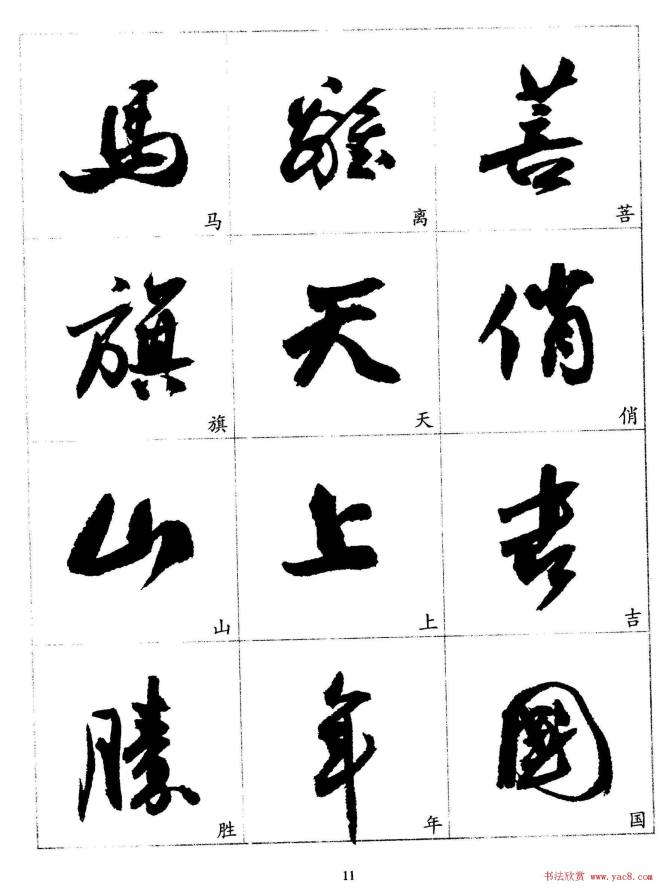 馬 離 菩
马 离 菩
旗 天 俏
旗 天 俏
山 上 吉
山 上 吉
勝 年 國
胜 年 国
11
书法欣赏 www.yac8.com